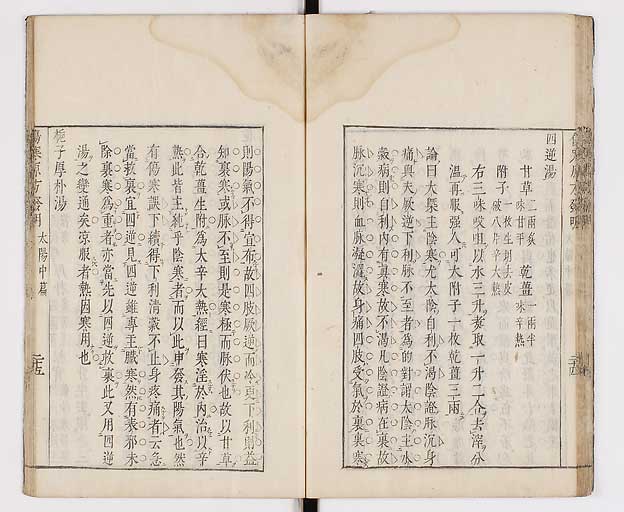 四逆湯
甘草二兩炙味甘平 乾薑一兩半味辛熱
附子一枚生用去皮破八片辛大熱
右三味㕮咀以水三升煮取一升二合去滓分
溫再服强人可大附子一枚乾薑三兩
論曰大槩主陰寒尤太陰自利不渴陰證脉沉身
痛與夫厥逆下利脉不至者為的對謂太陰主水
穀病則自利內有真寒故不渴凡陰證病在裏故
脉沉寒則血脉凝濇故身痛四肢受氣於裏裏寒
則陽氣不得宣布故四肢厥逆而冷更下利則益
知裏寒或脉不至則是寒極而脉伏也故以甘草
合乾薑生附為大辛大熱經曰寒淫於內治以辛
熱此皆主純乎陰寒者而以此申發其陽氣也然
有傷寒誤下續得下利清穀不止身疼痛者云急
當救裏宜四逆見四逆雖專主臟寒然有表邪未
除裏寒為重者亦當先以四逆救裏此又用四逆
湯之變通矣凉服者熱因寒用也
梔子厚朴湯
傷寒原方發明 太陽中篇